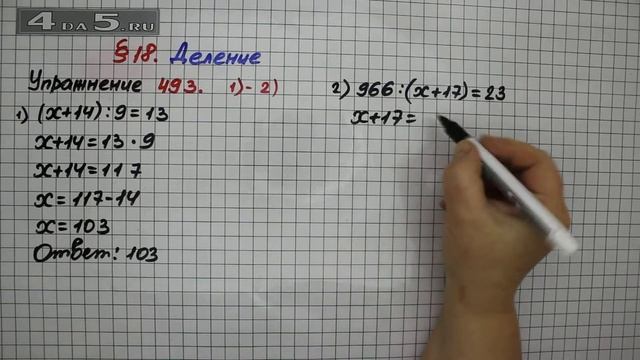 4DA5.RU
§18. Деление
Упражнение 493. 1)-2)
1) (x+14):9=13
x+14=13·9
x+14=117
x=117-14
x=103
Ответ: 103
2) 966:(x+17)=23
x+17=